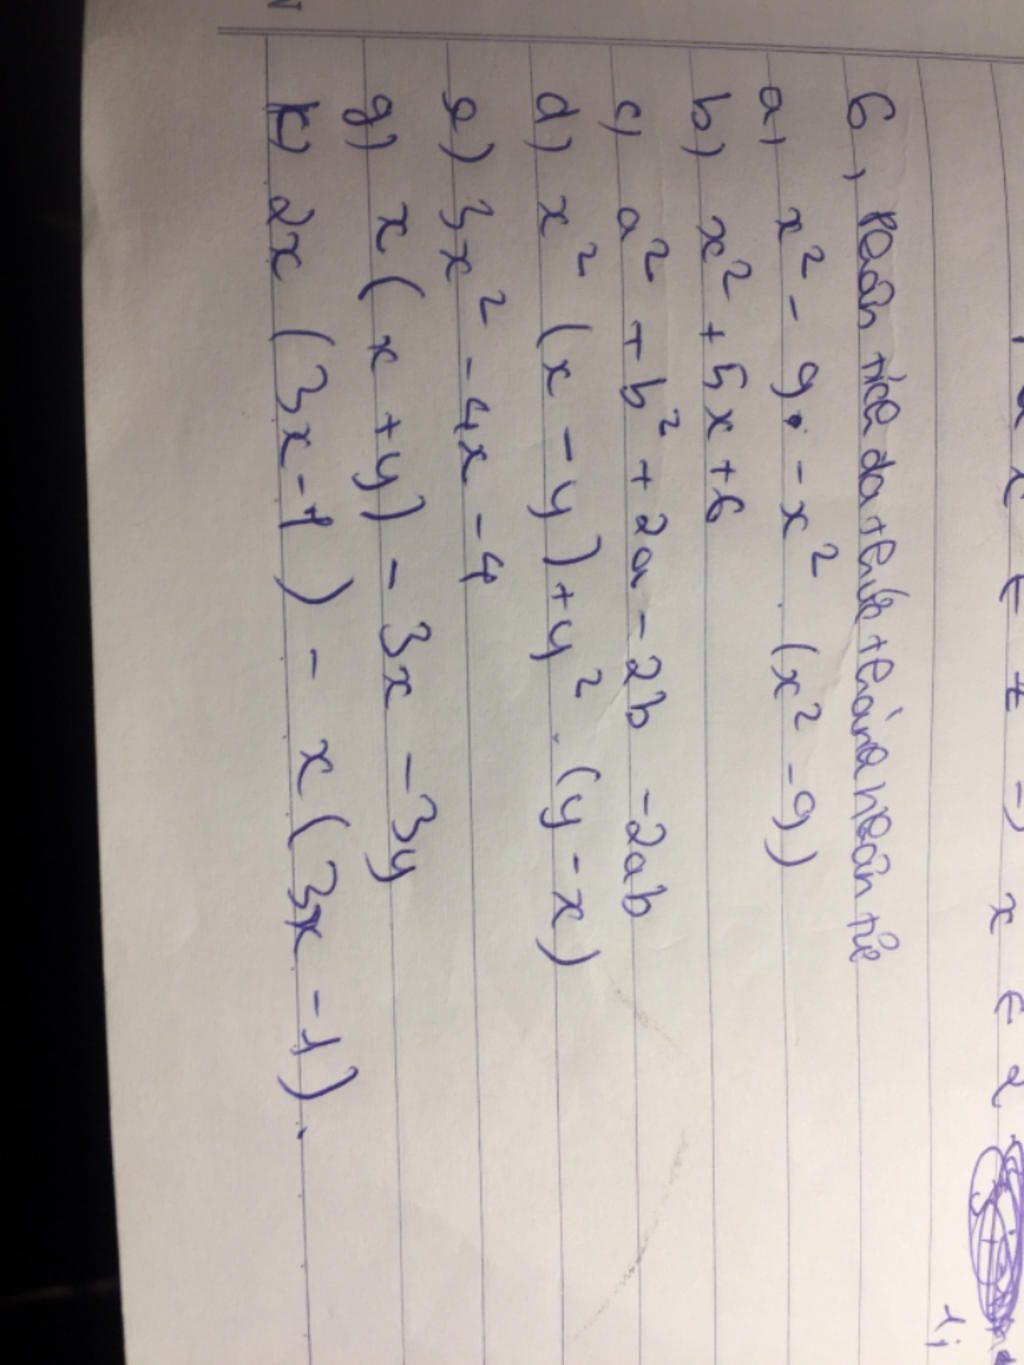 6, Phân tích đa thức thành nhân tử
a, x² - 9 - x² (x² - 9)
b) x² + 5x + 6
c, a² + b² + 2a - 2b - 2ab
d) x² (x - y) + y² (y - x)
e) 3x² - 4x - 4
g) x (x + y) - 3x - 3y
k) 2x (3x - 1) - x (3x - 1).